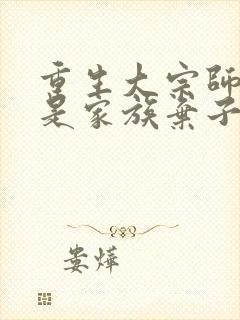 重生大宗師
是家族棄子
娄烨